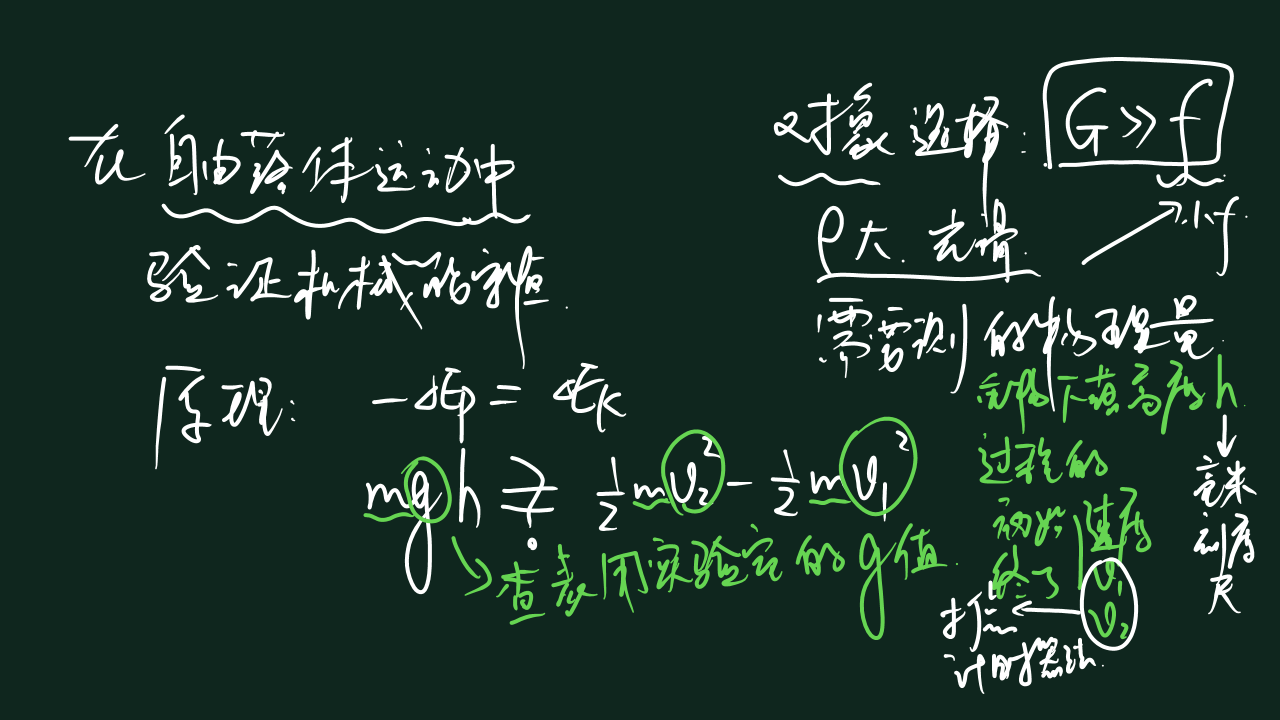 在自由落体运动中
验证机械能守恒.
原理: -ΔEp = ΔEk
mgh ≟ ½mv₂² - ½mv₁²
查表用实验室的g值.
对象选择: G≫f
ρ大.光滑 小f.
需要测的物理量
重物下落高度h
过程的
初始速度 v₁
终了 v₂
毫米
刻度
尺
打点
计时器法.